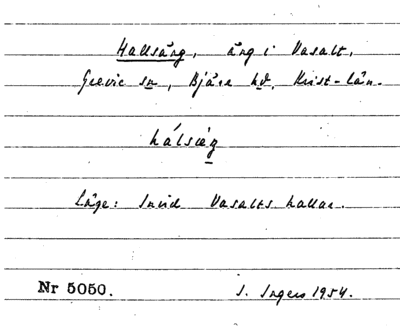 Hallsäng, äng i Vasalt,
Grevie sn, Bjäre hd, Krist-län.
hálsæŋ
Läge: Invid Vasalts hallar.
Nr 5050. I. Ingers 1954.